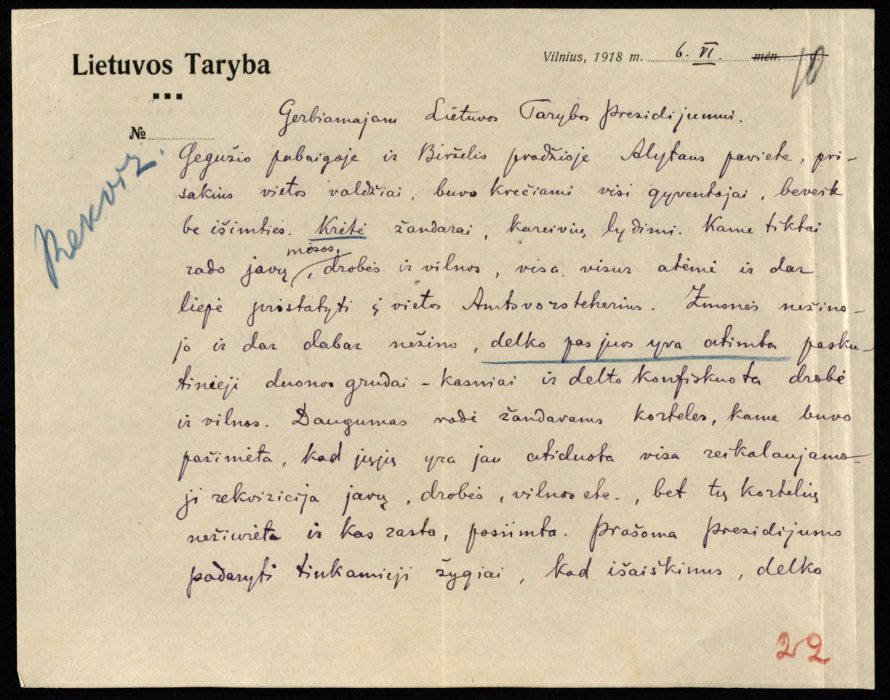 Lietuvos Taryba
Vilnius, 1918 m. 6. VI. mėn. d.
10
№
Rekviz.
Gerbiamajam Lietuvos Tarybos Prezidijumui.
Gegužio pabaigoje ir Birželio pradžioje Alytaus paviete, pri-
sakius vietos valdžiai, buvo krečiami visi gyventojai, beveik
be išimties. Krėtė žandarai, kareivių lydimi. Kame tiktai
rado javų, mėsos, drobės ir vilnos, visa visur atėmė ir dar
liepė pristatyti į vietos Amtsvorsteherius. Žmonės nežino-
jo ir dar dabar nežino, delko pas juos yra atimta pasku-
tinieji duonos grudai – kasniai ir delto konfiskuota drobė
ir vilnos. Daugumas rodė žandarams korteles, kame buvo
pažimėta, kad jųjų yra jau atiduota visa reikalaujamo-
ji rekvizicija javų, drobės, vilnos etc., bet tų kortelių
nežiurėta ir kas rasta, pasiimta. Prašoma Prezidijumo
padaryti tinkamieji žygiai, kad išaiškinus, delko
22